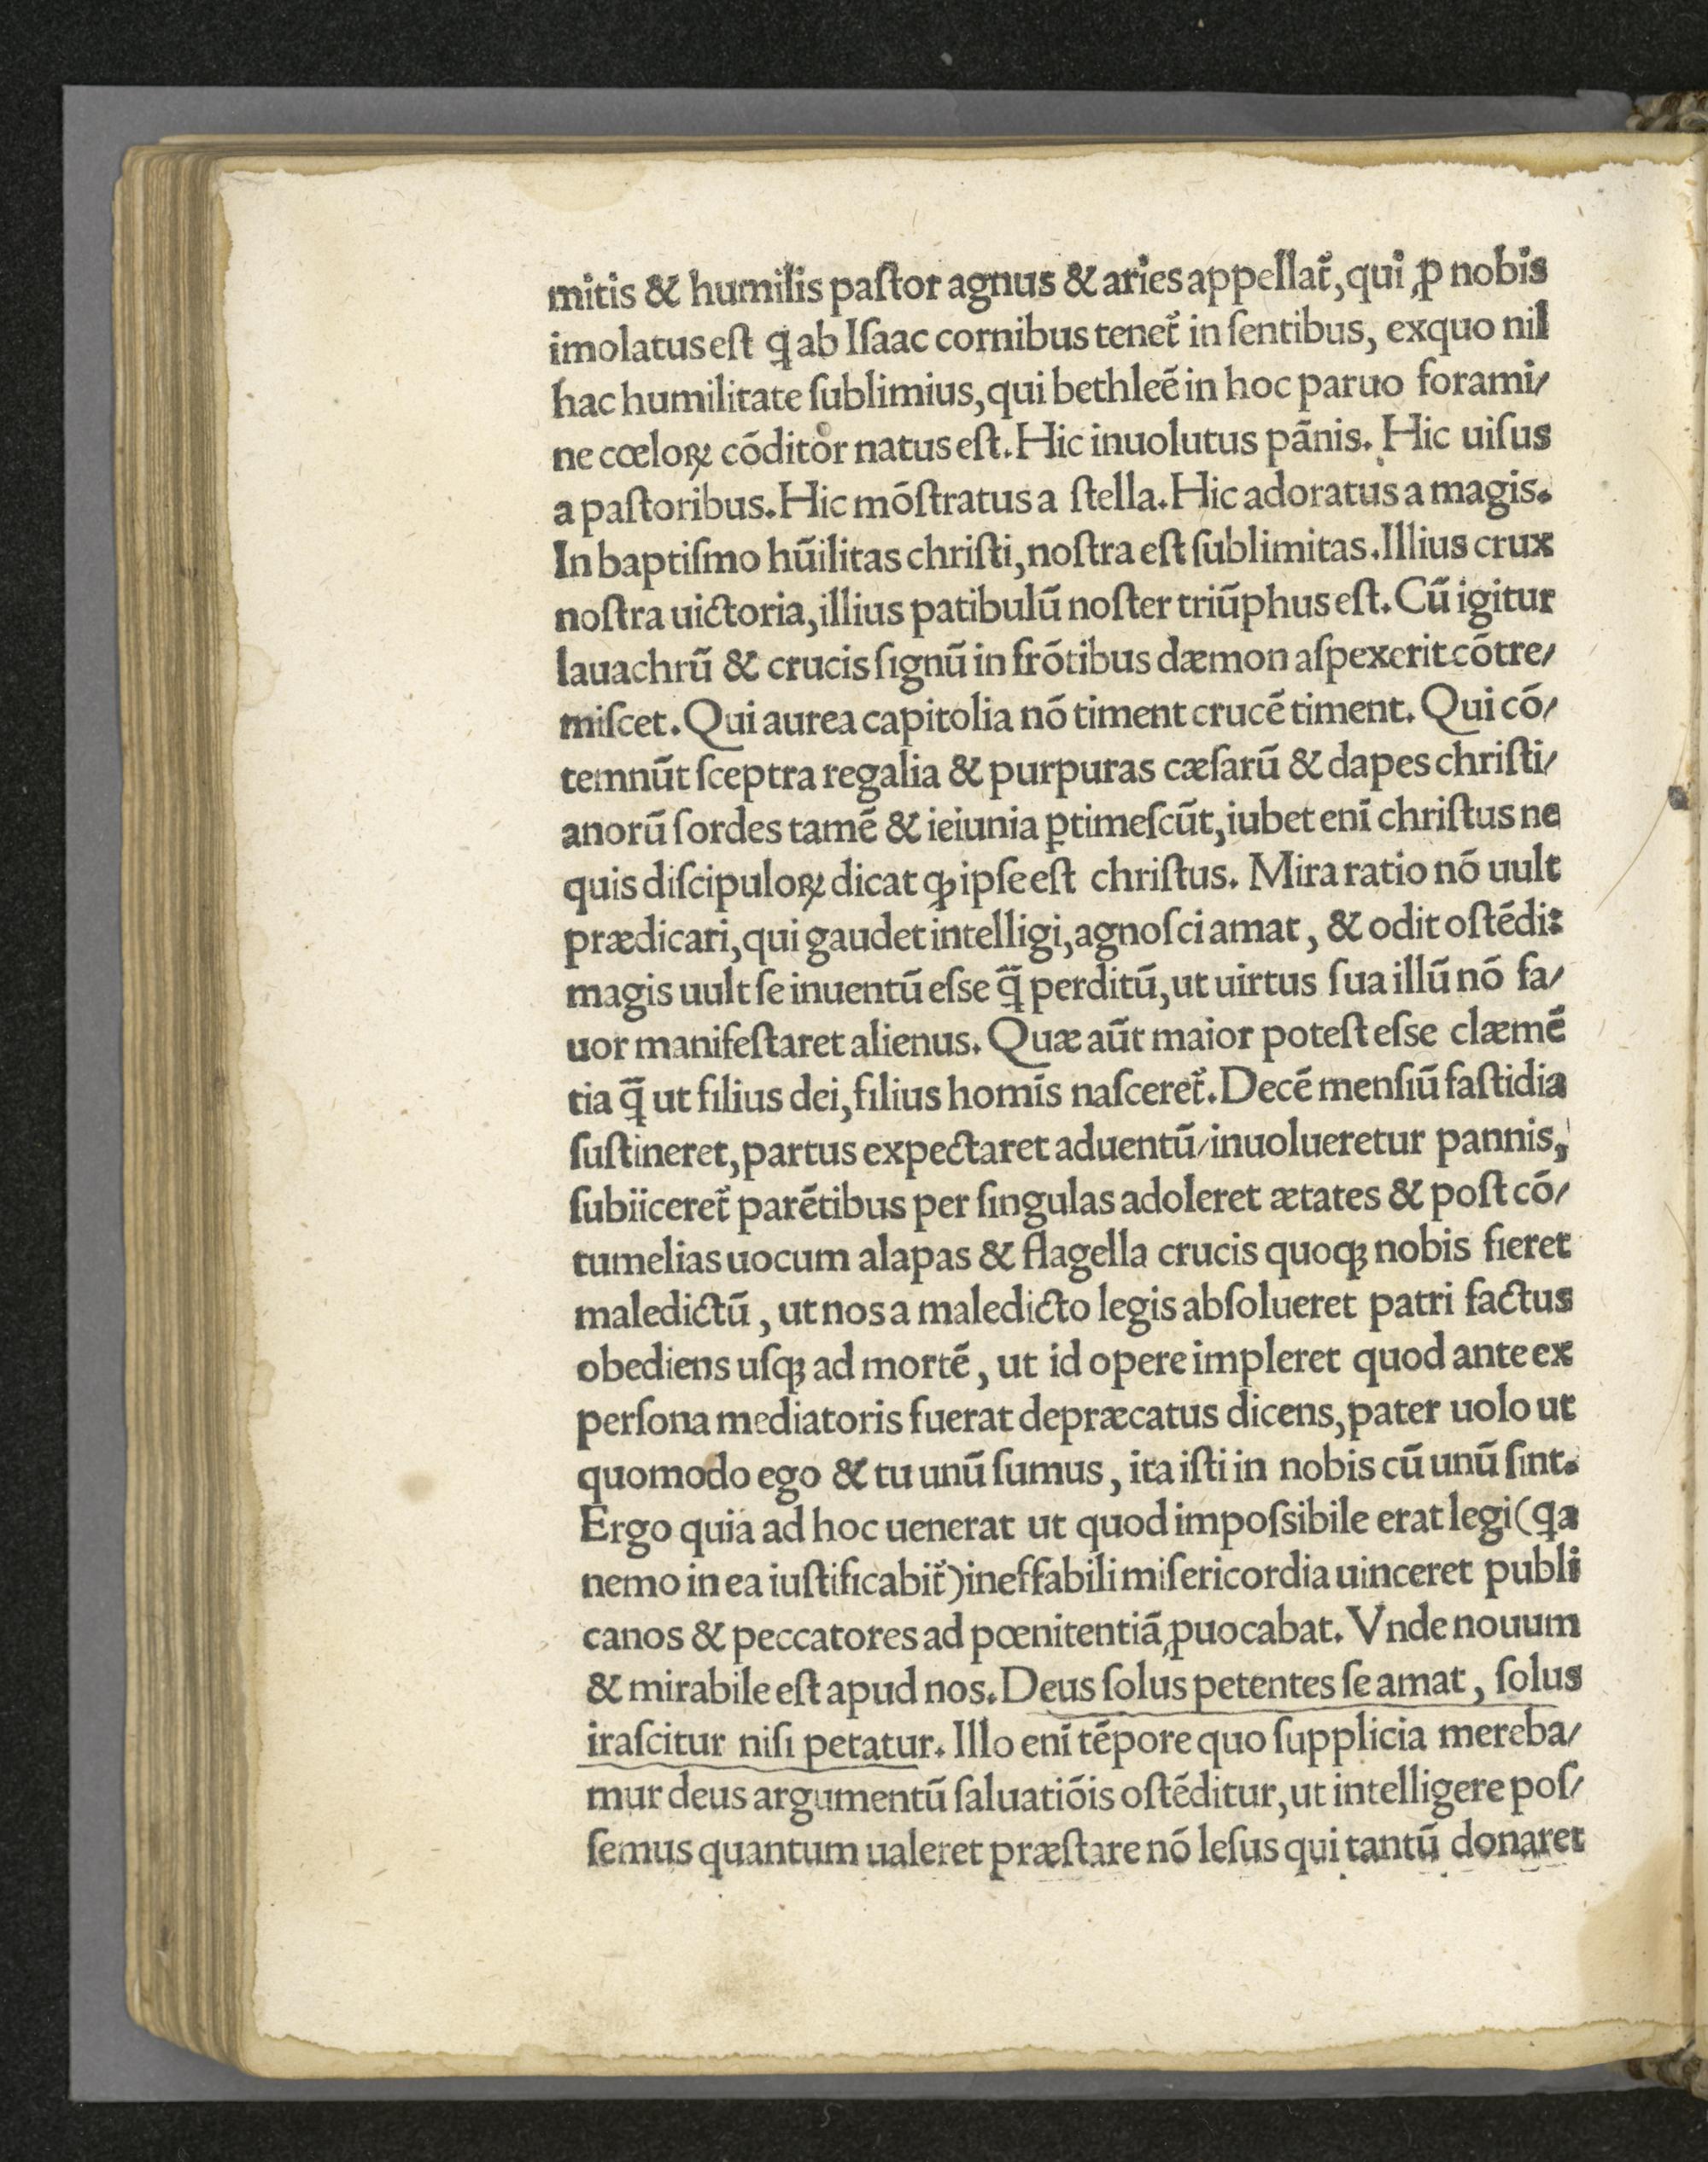 mitis & humilis paſtor agnus & aries appellat᷑, qui ꝓ nobis
imolatus est ꝗ ab Iſaac cornibus tenet᷑ in ſentibus, exquo nil
hac humilitate ſublimius, qui bethleē in hoc paruo forami/
ne cœloꝝ cōditor natus eſt. Hic inuolutus pānis. Hic uiſus
a paſtoribus. Hic mōſtratus a ſtella. Hic adoratus a magis.
In baptiſmo hūilitas chriſti, noſtra eſt ſublimitas. Illius crux
noſtra uictoria, illius patibulū noſter triūphus eſt. Cū igitur
lauachrū & crucis ſignū in frōtibus dæmon aſpexerit cōtre/
miſcet. Qui aurea capitolia nō timent crucē timent. Qui cō/
temnūt ſceptra regalia & purpuras cæſarū & dapes chriſti/
anorū ſordes tamē & ieiunia ꝑtimeſcūt, iubet enī chriſtus ne
quis diſcipuloꝝ dicat ꝙ ipſe eſt chriſtus. Mira ratio nō uult
prædicari, qui gaudet intelligi, agnoſci amat, & odit oſtēdi:
magis uult ſe inuentū eſse q̄̄ perditū, ut uirtus ſua illū nō fa/
uor manifeſtaret alienus. Quæ aūt maior poteſt eſse clæmē
tia q̄̄ ut filius dei, filius homīs naſceret᷑. Decē menſiū faſtidia
ſuſtineret, partus expectaret aduentū/ inuolueretur pannis,
ſubiiceret᷑ parētibus per ſingulas adoleret ætates & poſt cō/
tumelias uocum alapas & flagella crucis quoqꝫ nobis fieret
maledictū, ut nos a maledicto legis abſolueret patri factus
obediens uſqꝫ ad mortē, ut id opere impleret quod ante ex
perſona mediatoris fuerat depræcatus dicens, pater uolo ut
quomodo ego & tu unū ſumus, ita iſti in nobis cū unū ſint.
Ergo quia ad hoc uenerat ut quod impoſsibile erat legi (ꝗa
nemo in ea iuſtificabit᷑) ineffabili miſericordia uinceret publi
canos & peccatores ad pœnitentiā ꝓuocabat. Vnde nouum
& mirabile eſt apud nos. Deus ſolus petentes ſe amat, ſolus
iraſcitur niſi petatur. Illo enī tēpore quo ſupplicia mereba/
mur deus argumentū ſaluatiōis oſtēditur, ut intelligere poſ/
ſemus quantum ualeret præſtare nō leſus qui tantū donaret